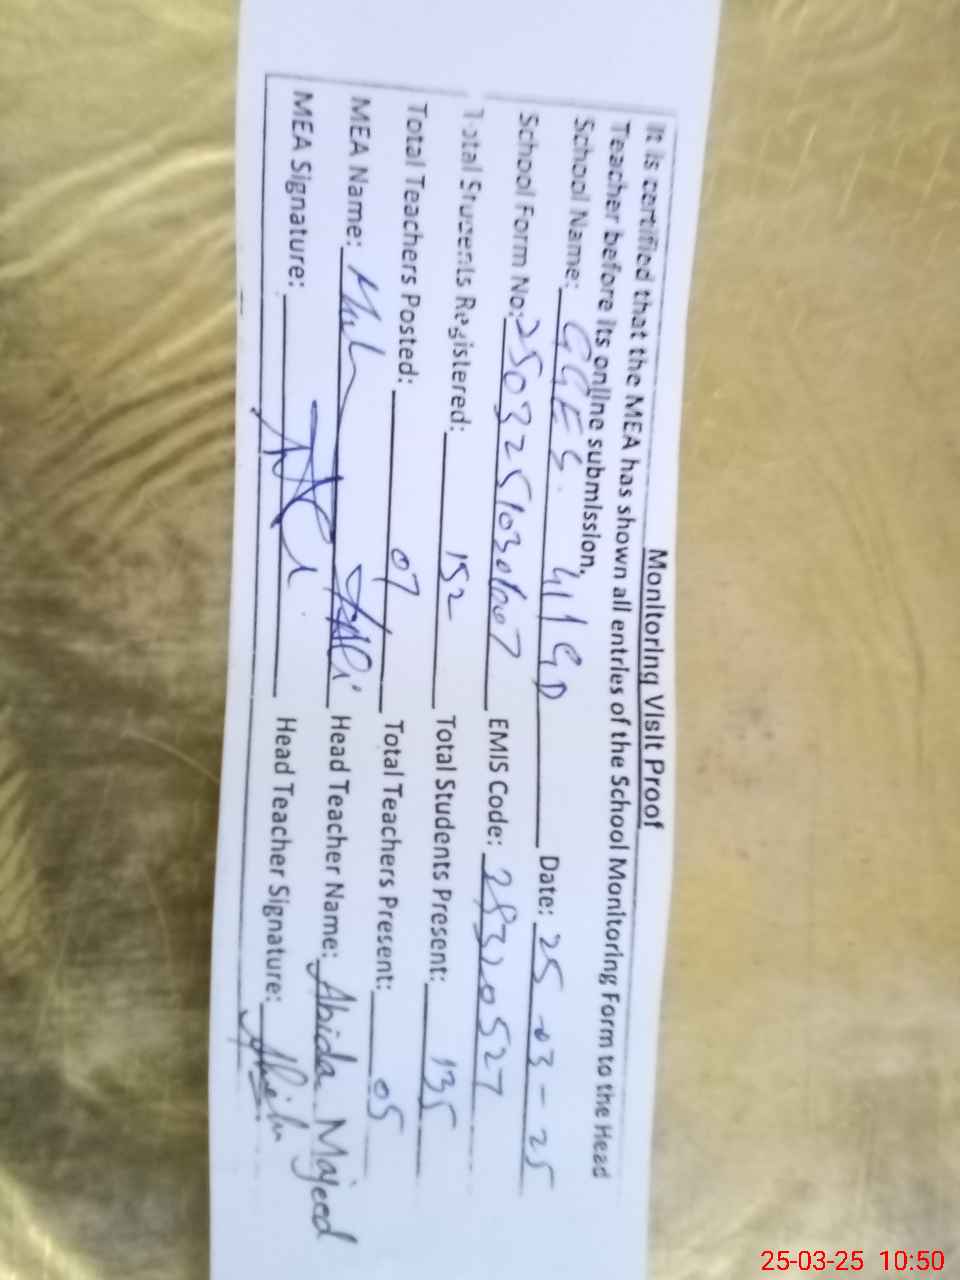 Monitoring Visit Proof
It is certified that the MEA has shown all entries of the School Monitoring Form to the Head
Teacher before its online submission.
School Name: GGES. 411 GD Date: 25-03-25
School Form No: EMIS Code:
Total Students Registered: 152 Total Students Present: 135
Total Teachers Posted: 07 Total Teachers Present: 05
MEA Name: Head Teacher Name: Abida Majeed
MEA Signature: Head Teacher Signature:
25-03-25 10:50